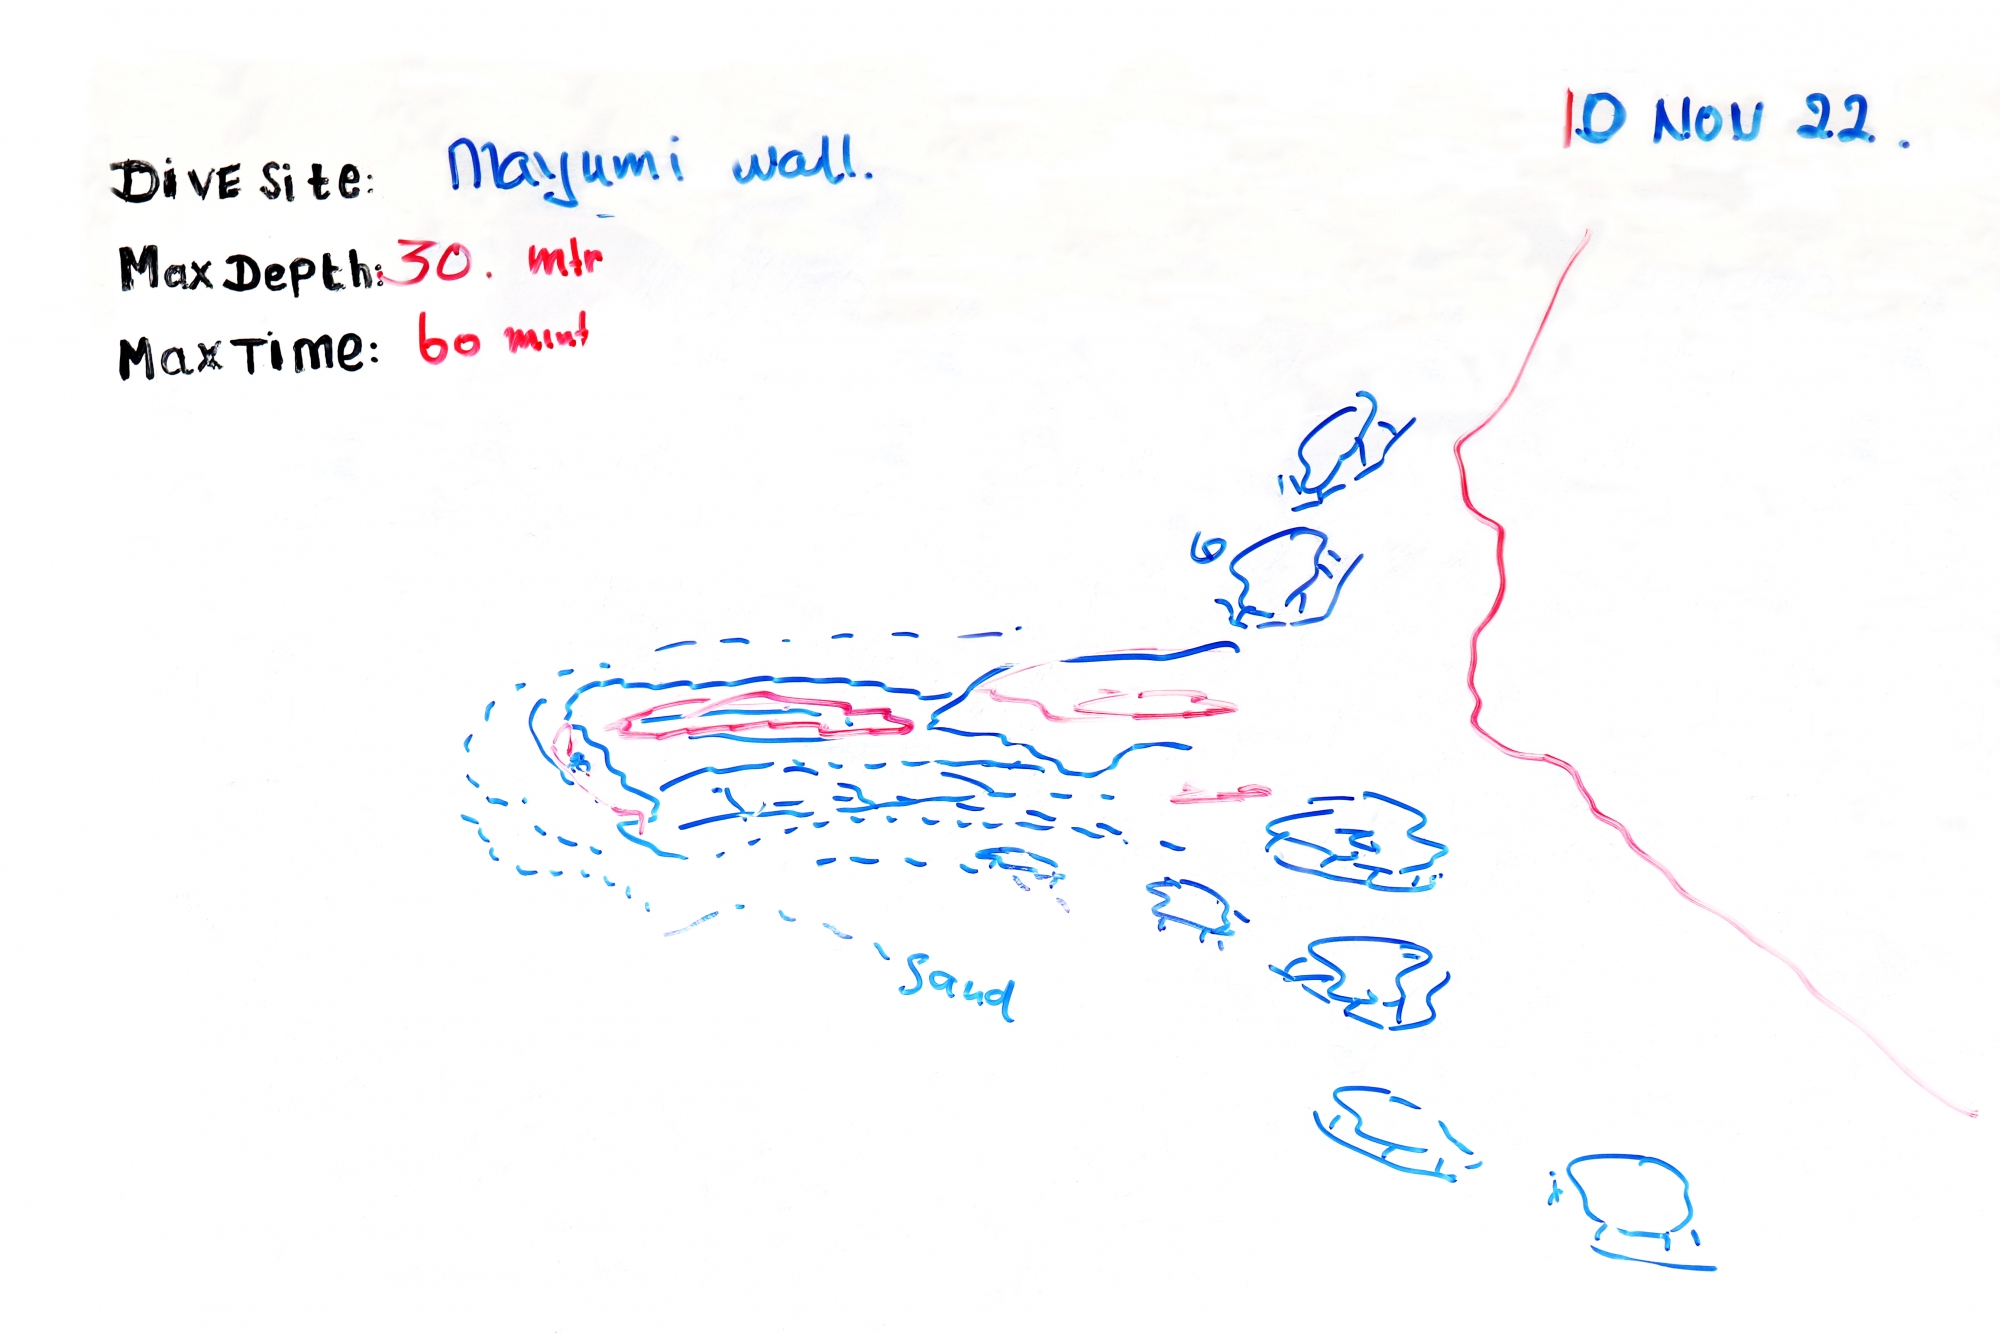 10 NOV 22.
Dive Site: Mayumi wall.
Max Depth: 30. mtr
Max Time: 60 mint
6
Sand